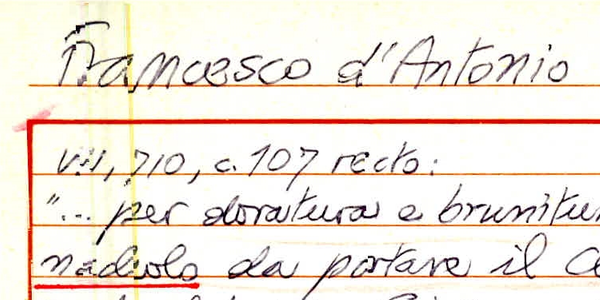 Francesco d'Antonio
VII, 710, c. 107 recto:
"... per doratura e brunitu
da portare il